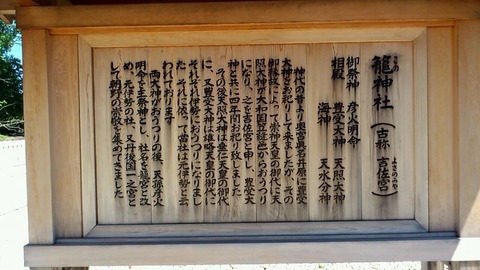 この
籠神社 (古称 吉佐宮)
よさのみや
御祭神 彦火明命
相殿 豊受大神 天照大神
海神 天水分神
神代の昔より奥宮眞名井原に豊受
大神とお祀りして来ましたが、その
御縁故によって崇神天皇の御代に天
照大神が大和国笠縫邑からおうつり
になり、之を吉佐宮と申し、豊受大
神と共に四年間お祀り致しました
その後天照大神は垂仁天皇の御代
に、又豊受大神は雄略天皇の御代に
それぞれ伊勢におうつりになりまし
た。それに依って當社は元伊勢と云
われております
両大神がおうつりの後、天孫彦火
明命を主祭神とし、社名を籠宮と改
め、元伊勢の社、又丹後国一之宮と
して朝野の崇敬を集めてきました